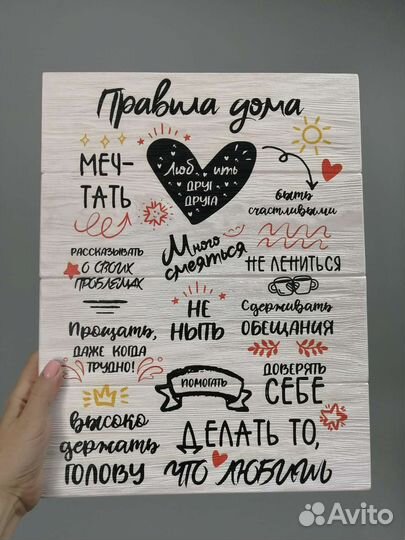 Правила дома
МЕЧ-
ТАТЬ
Люб ить
ДРУГ
ДРУГА
быть
счастливыми
РАССКАЗЫВАТЬ
О СВОИХ
ПРОБЛЕМАХ
Много
смеяться
НЕ ЛЕНИТЬСЯ
Прощать,
ДАЖЕ КОГДА
ТРУДНО!
НЕ
НЫТЬ
Сдерживать
ОБЕЩАНИЯ
ПОМОГАТЬ
ДОВЕРЯТЬ
СЕБЕ
Высоко
держать
ГОЛОВУ
ДЕЛАТЬ ТО,
ЧТО ЛЮБИШЬ
Avito